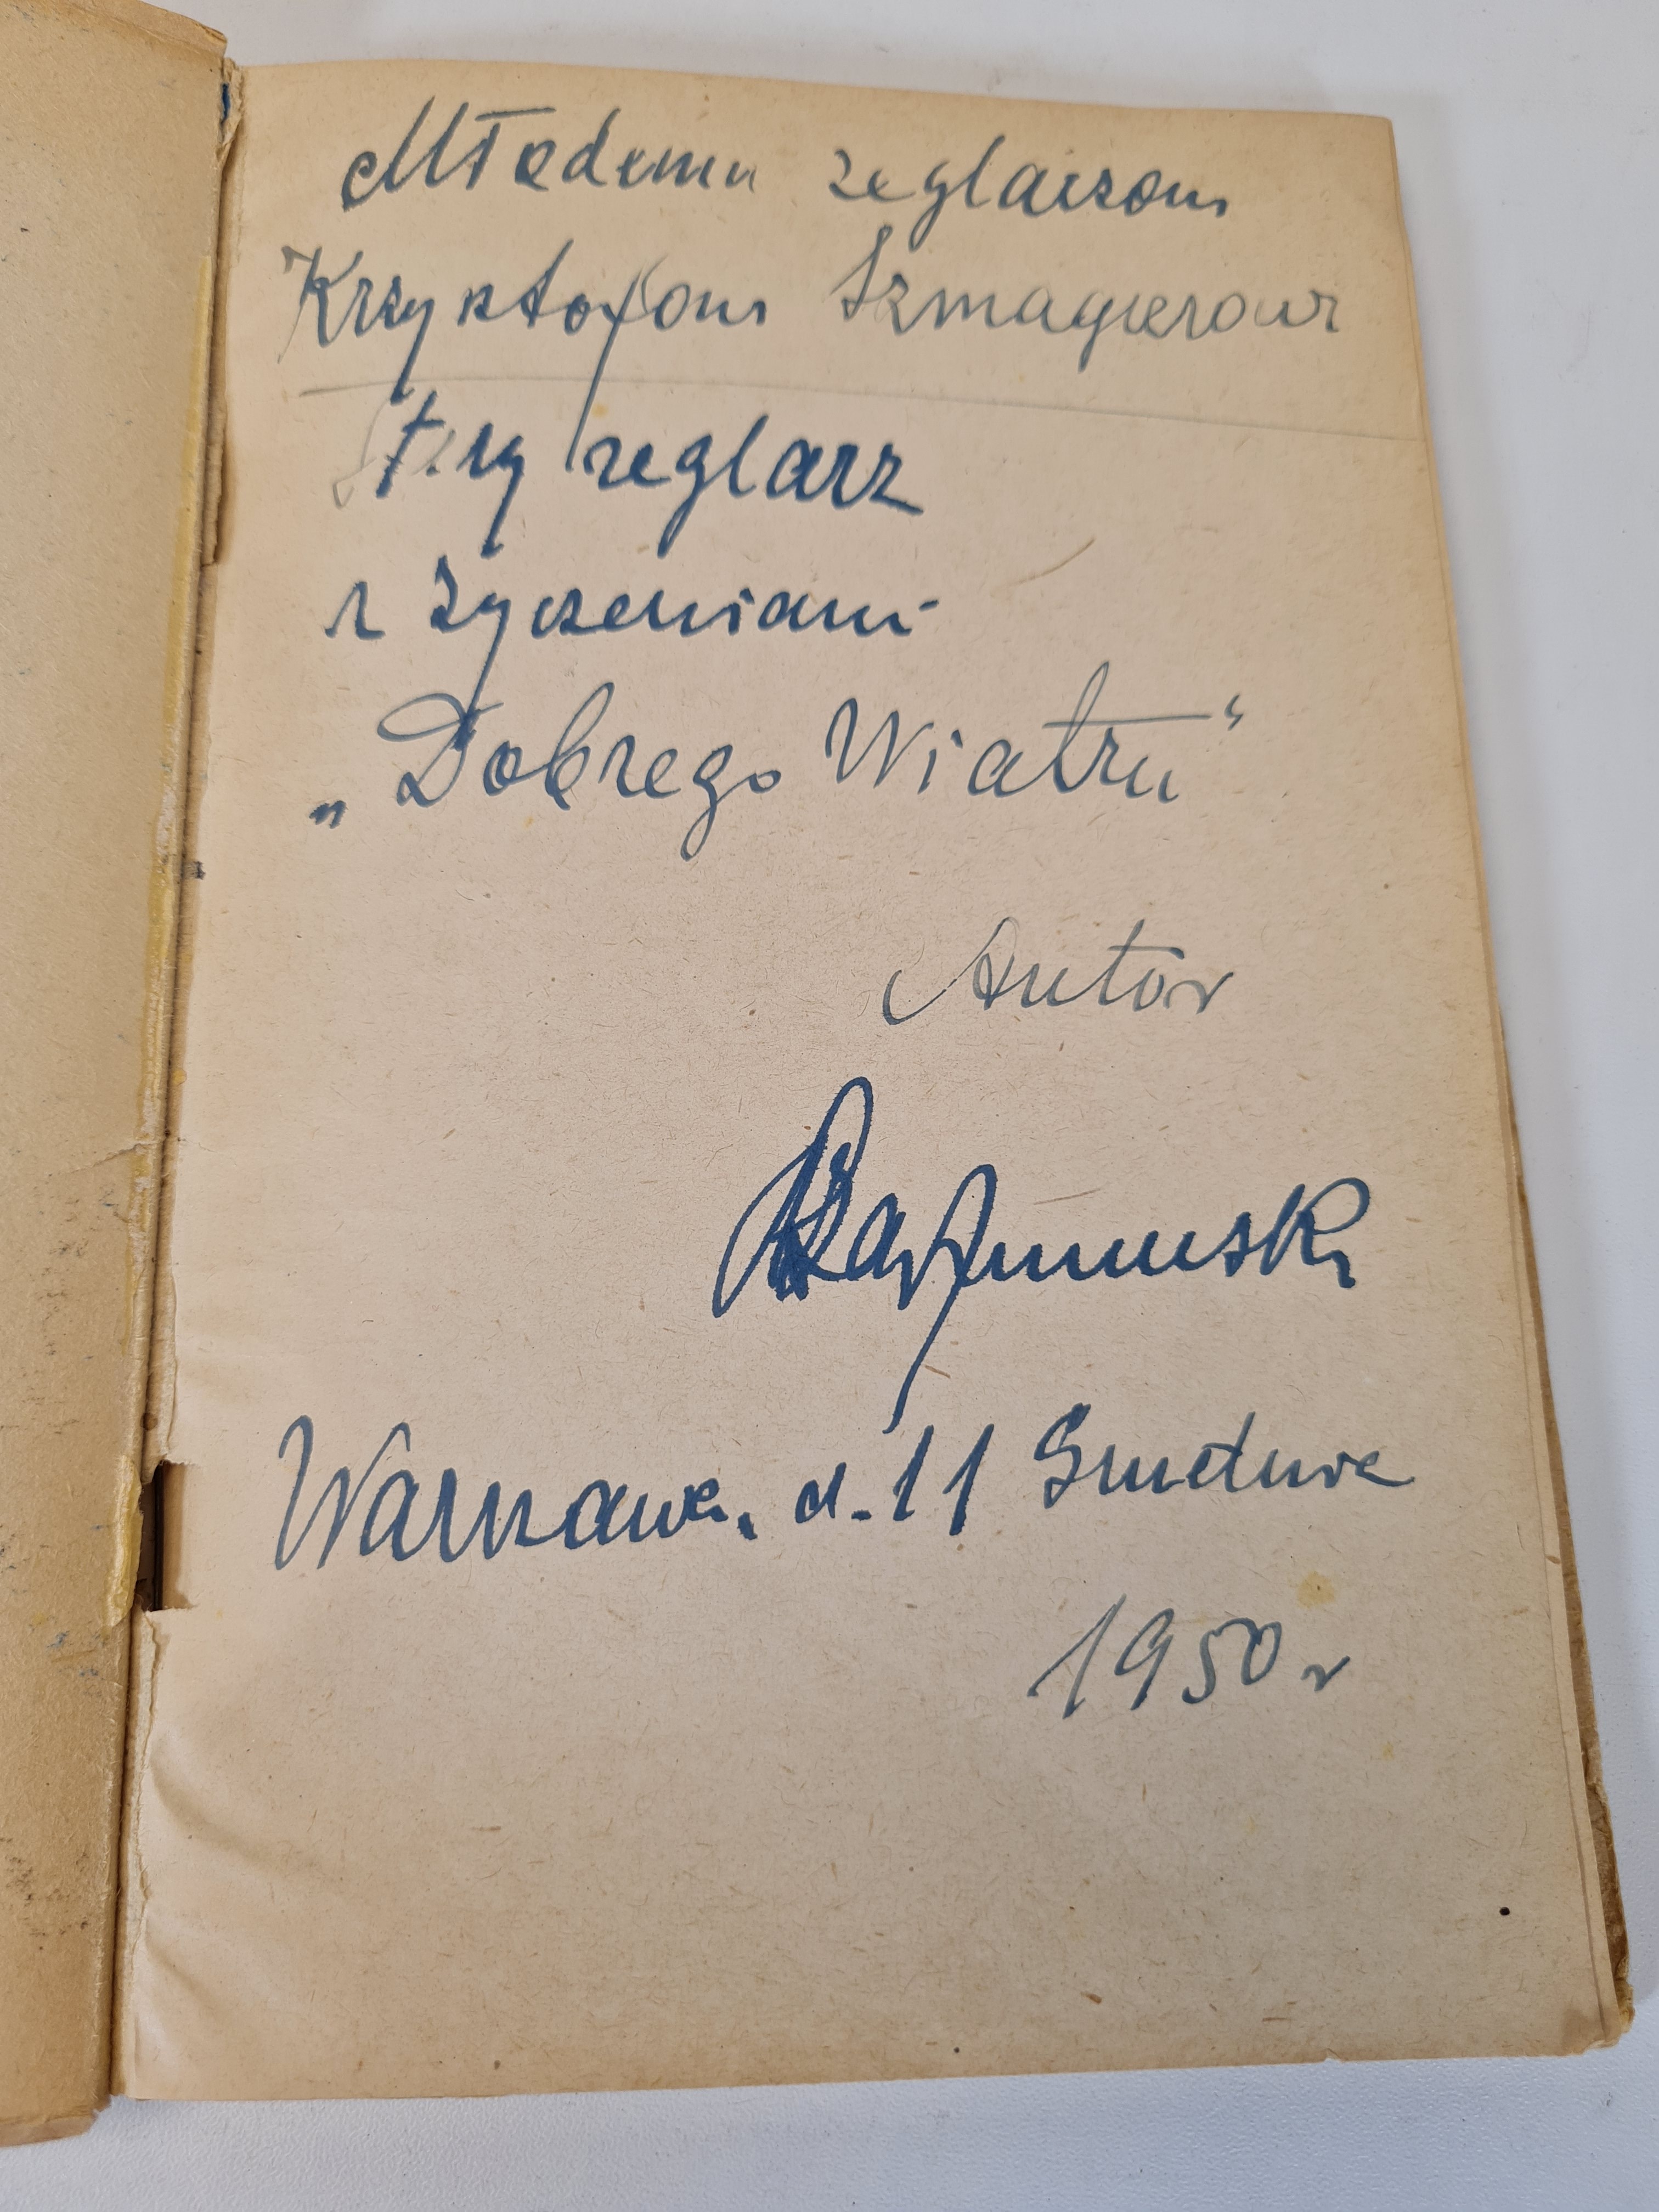 Młodemu żeglarzowi
Krzysztofowi Szmagierowi
Stary żeglarz
z życzeniami
„Dobrego Wiatru“
Autor
Warszawa, d. 11 Grudnia
1950 r